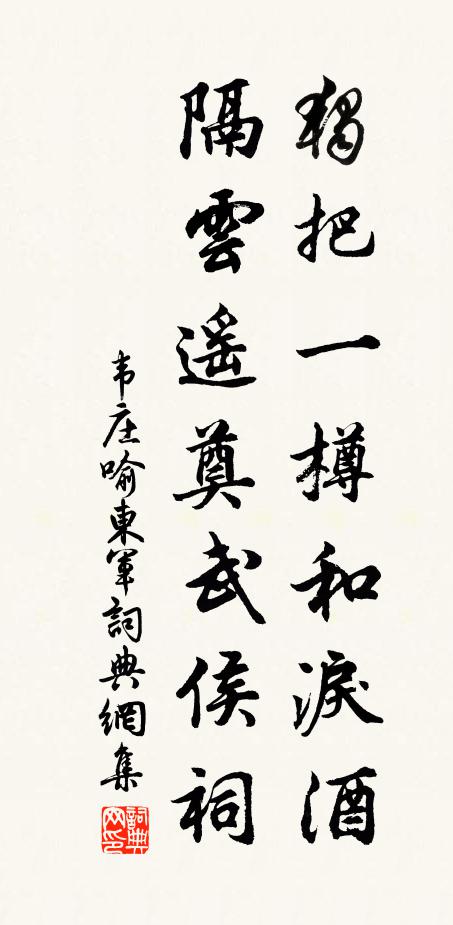 獨把一樽和淚酒
隔雲遥奠武侯祠
韦庄喻東軍詞典網集
詞典网印